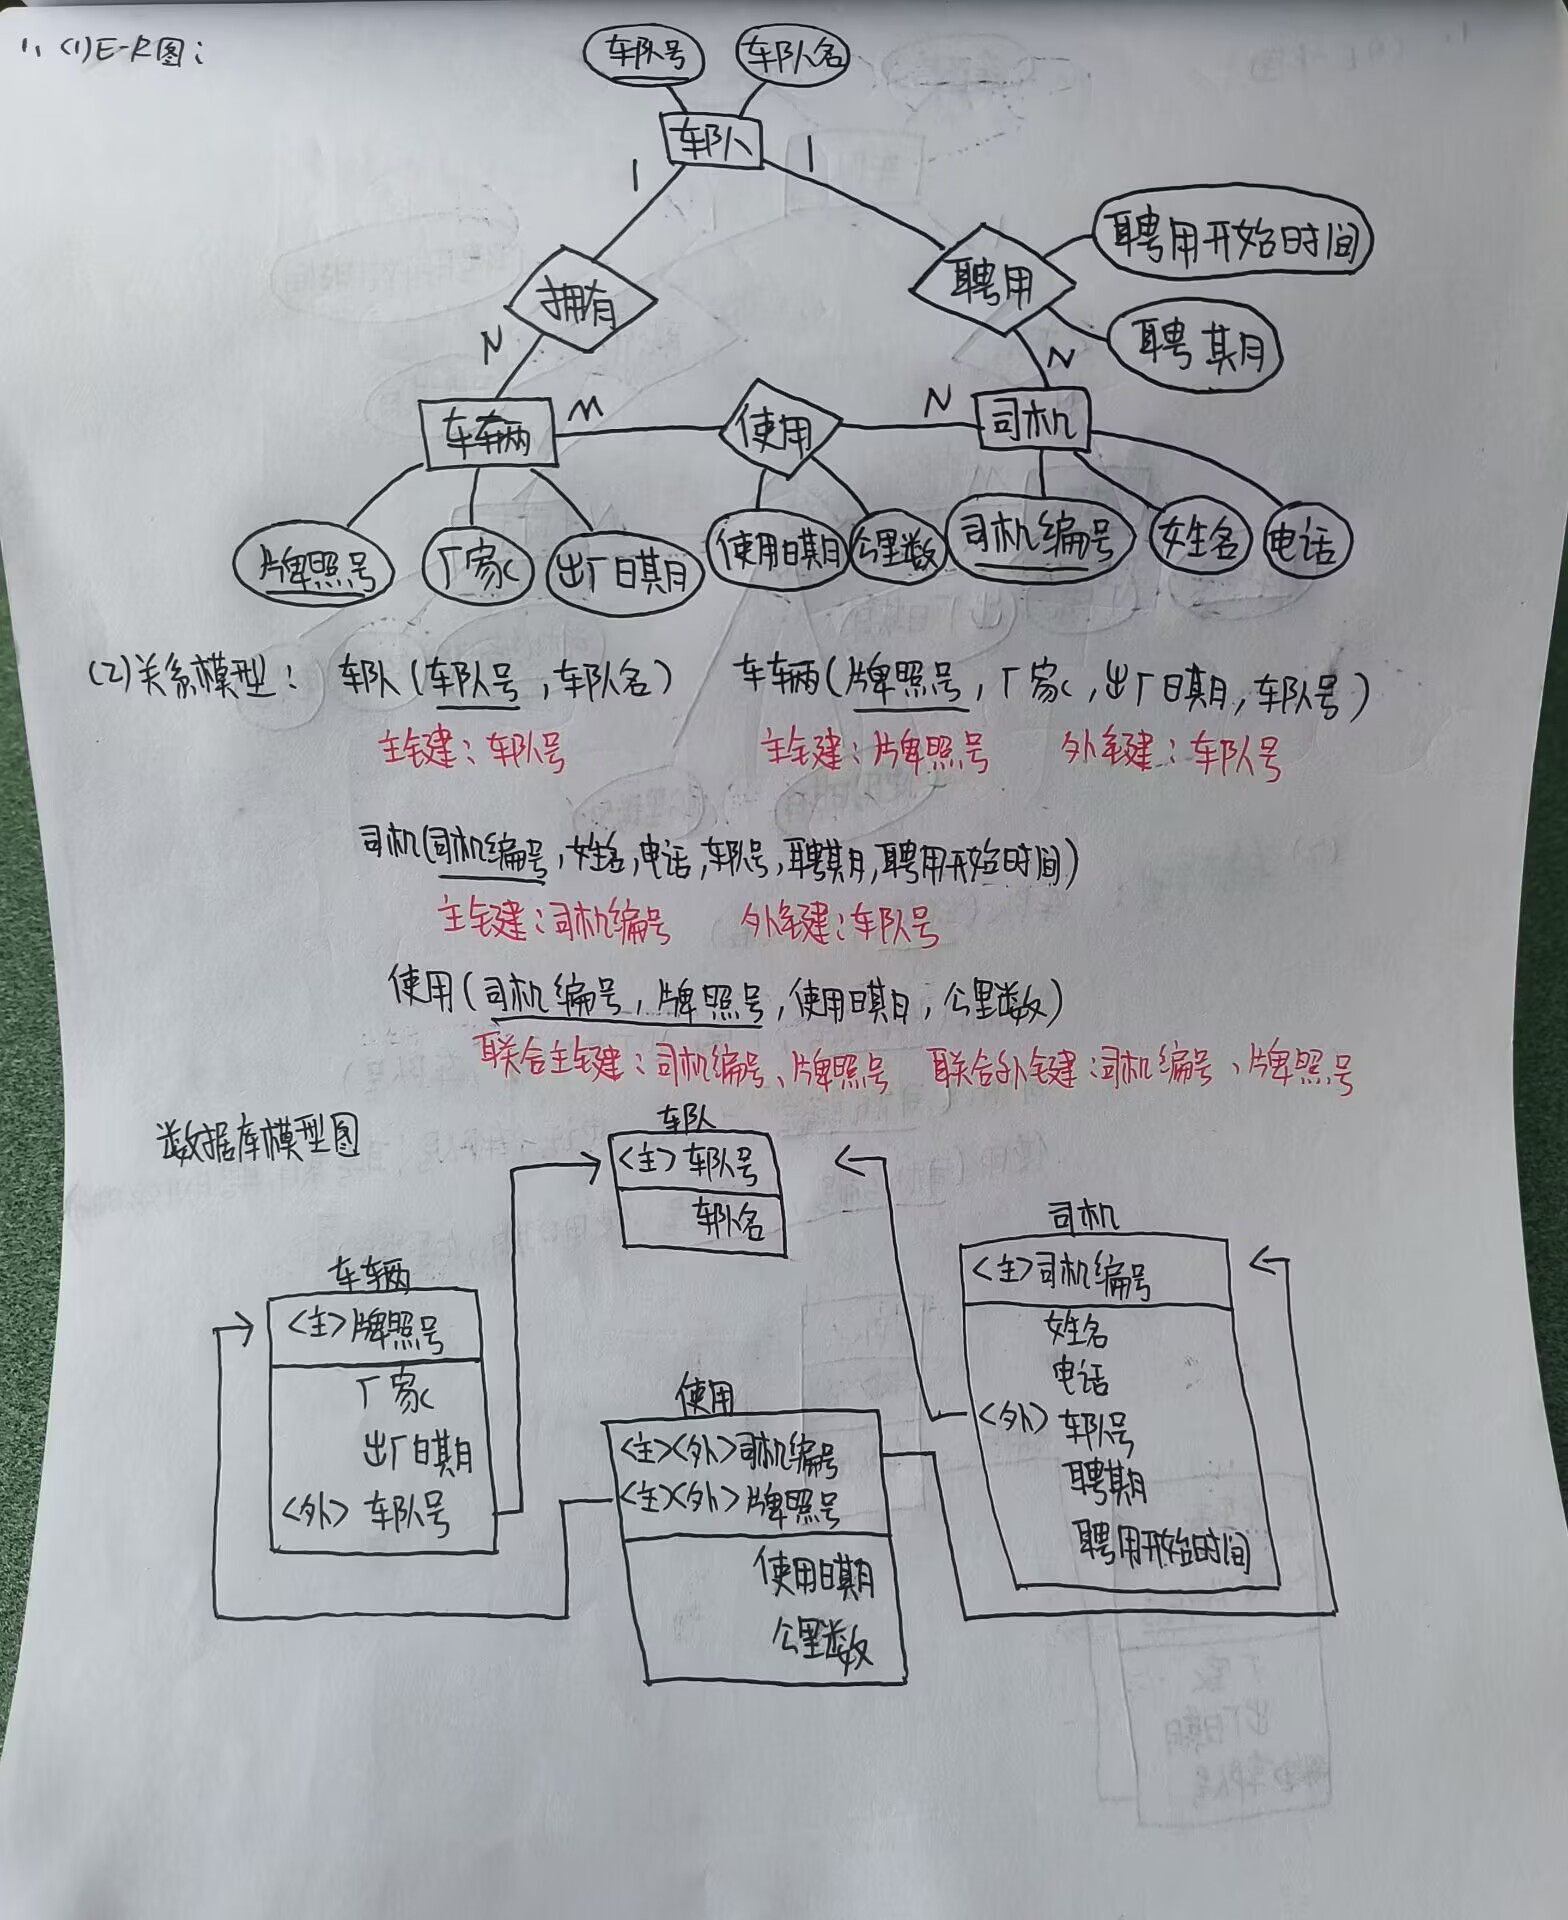 1、(1)E-R图：
车队号 车队名
车队
1 1
聘用开始时间
拥有 聘用
聘期
N N
车辆 M 使用 N 司机
牌照号 厂家 出厂日期 使用日期 公里数 司机编号 姓名 电话
(2)关系模型： 车队(车队号,车队名) 车辆(牌照号,厂家,出厂日期,车队号)
主键：车队号 主键：牌照号 外键：车队号
司机(司机编号,姓名,电话,车队号,聘期,聘用开始时间)
主键：司机编号 外键：车队号
使用(司机编号,牌照号,使用日期,公里数)
联合主键：司机编号、牌照号 联合外键：司机编号、牌照号
数据库模型图
车队
<主>车队号
车队名
车辆
<主>牌照号
厂家
出厂日期
<外>车队号
使用
<主><外>司机编号
<主><外>牌照号
使用日期
公里数
司机
<主>司机编号
姓名
电话
<外>车队号
聘期
聘用开始时间